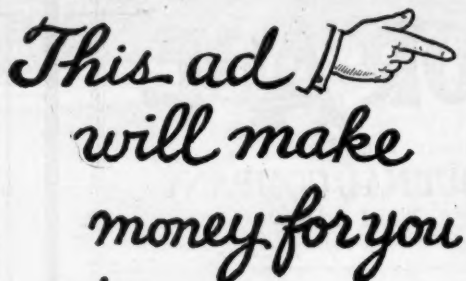 This ad
will make
money for you